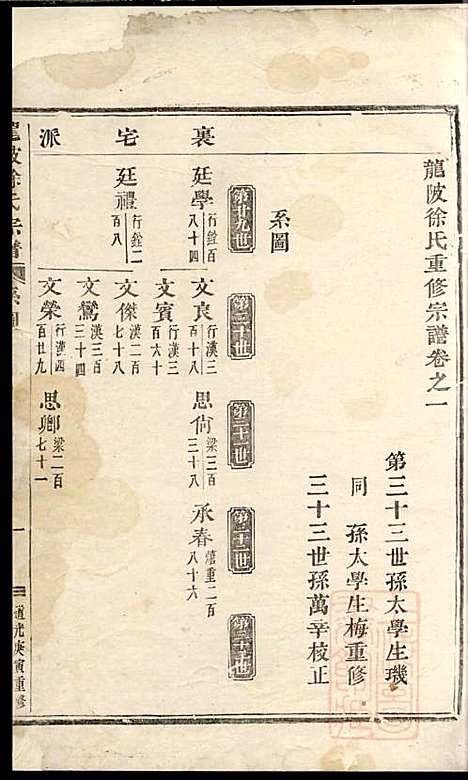 龍陂徐氏重修宗譜卷之一
第三十三世孫太學生璣
同 孫太學生梅重修
三十三世孫萬辛校正
系圖
第廿九世
第三十世
第三十一世
第三十二世
第三十三世
裏宅派
廷學 行銓百八十四
文良 行漢三百十八
思尙 梁三百三十八
承春 熺重二百八十六
文賓 行漢三百六十
廷禮 行銓二百八
文傑 漢二百七十八
文鸞 漢三百三十四
文榮 行漢四百廿九
思卿 梁二百七十一
龍陂徐氏宗譜
系圖
一
道光庚寅重修